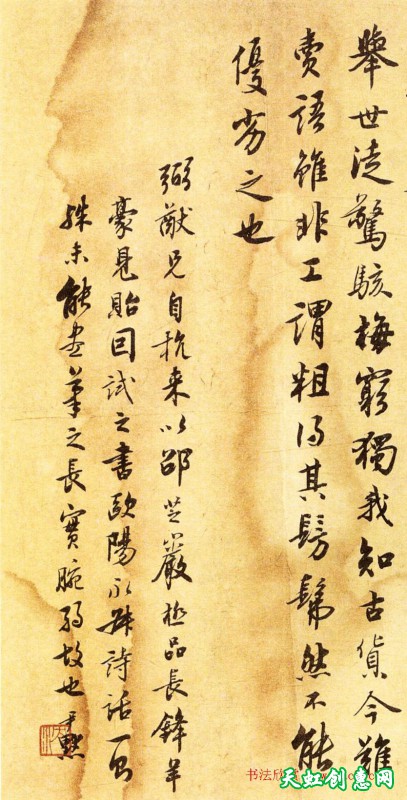 舉世徒驚駭梅窮獨我知古貨今難
賣語雖非工謂粗得其髣髴然不能
優劣之也
弼猷兄自杭來以邵芝巖極品長鋒羊
豪見貽因試之書歐陽永叔詩話一節
殊未能盡筆之長實腕弱故也 尹默
书法欣
天虹创意网